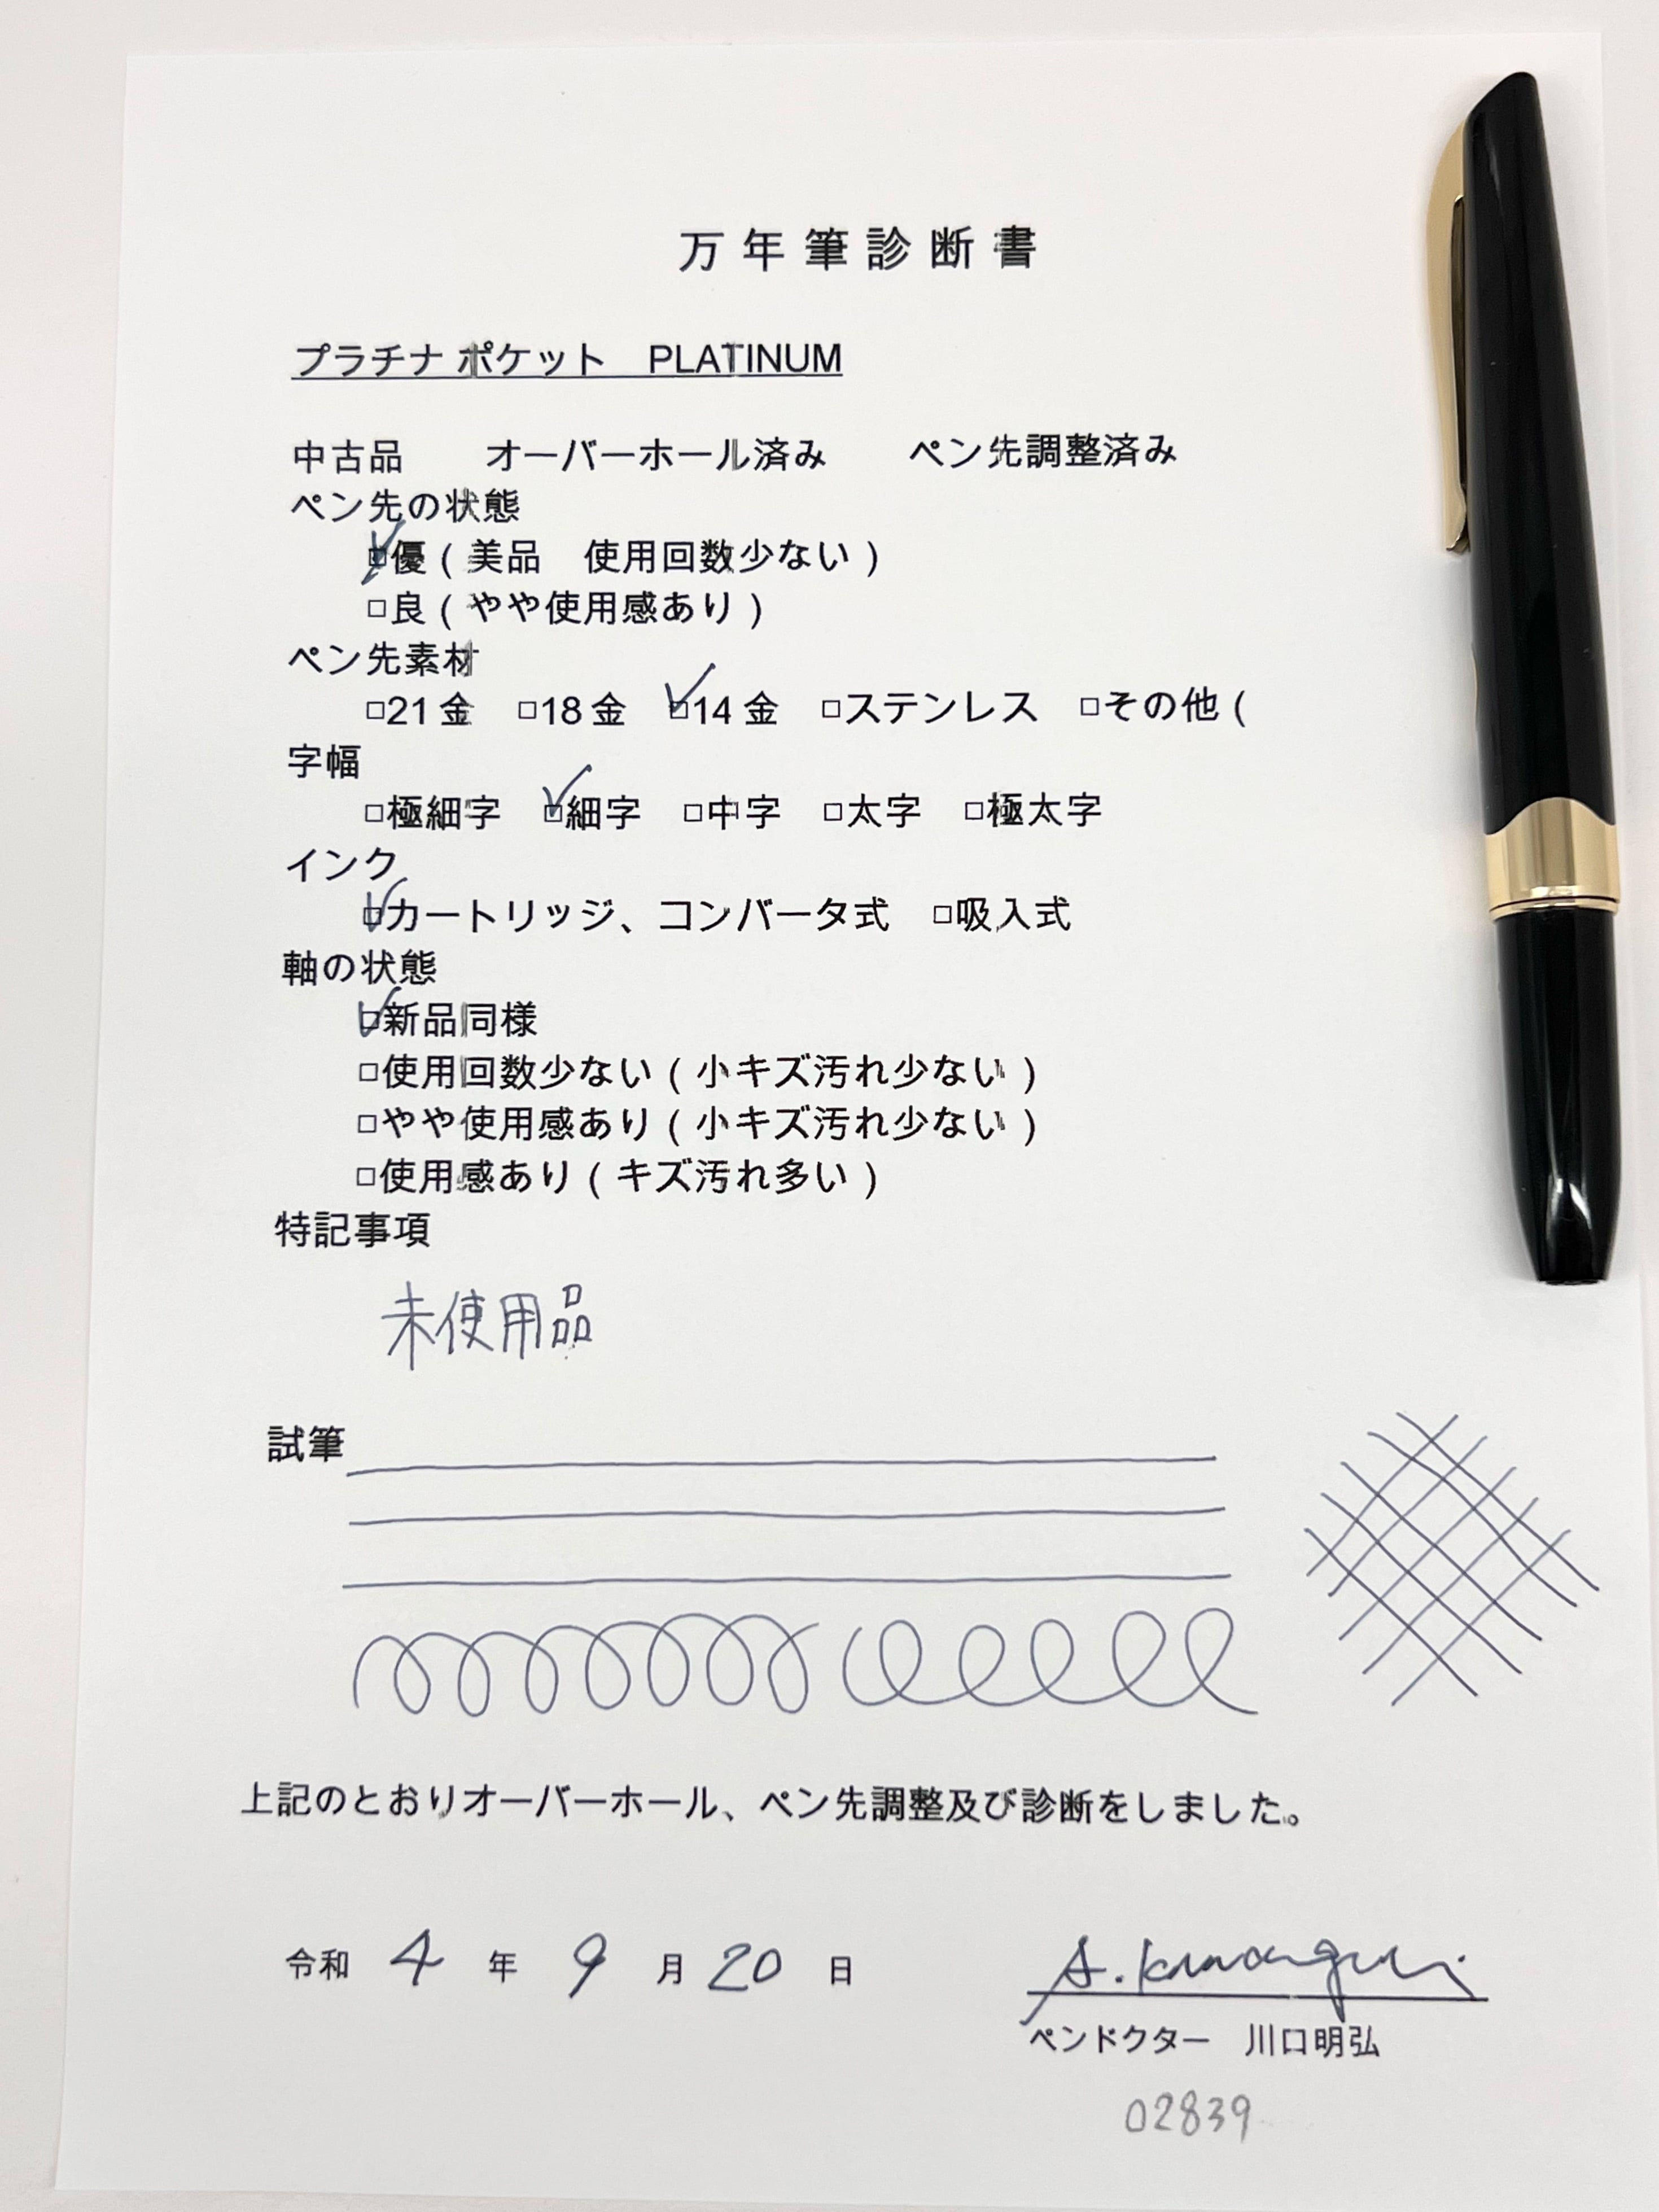 万年筆診断書
プラチナ ポケット　PLATINUM
中古品　　オーバーホール済み　　ペン先調整済み
ペン先の状態
☑優（美品　使用回数少ない）
□良（やや使用感あり）
ペン先素材
□21金　□18金　☑14金　□ステンレス　□その他（
字幅
□極細字　☑細字　□中字　□太字　□極太字
インク
☑カートリッジ、コンバータ式　□吸入式
軸の状態
☑新品同様
□使用回数少ない（小キズ汚れ少ない）
□やや使用感あり（小キズ汚れ少ない）
□使用感あり（キズ汚れ多い）
特記事項
未使用品
試筆
上記のとおりオーバーホール、ペン先調整及び診断をしました。
令和 4 年 9 月 20 日
A. Kawaguchi
ペンドクター　川口明弘
02839